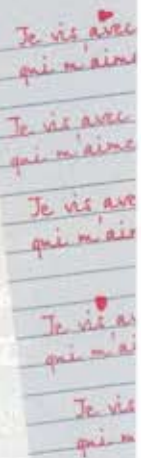 Je vis avec
qui m'aime
Je vis avec
qui m'aime
Je vis ave
qui m'air
Je vis av
qui m'ai
Je vis
qui m